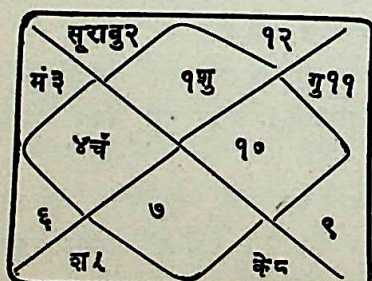 सूराबु२ १२
मं३ १शु गु११
४चं १०
६ ७ ९
श८ के८